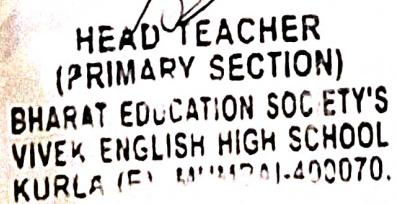 HEAD TEACHER
(PRIMARY SECTION)
BHARAT EDUCATION SOCIETY'S
VIVEK ENGLISH HIGH SCHOOL
KURLA (E), MUMBAI-400070.